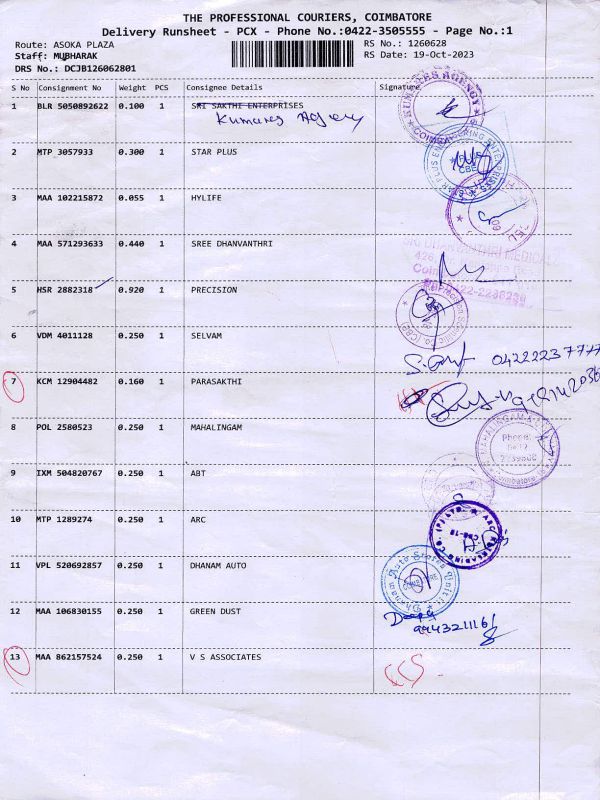 THE PROFESSIONAL COURIERS, COIMBATORE
Delivery Runsheet - PCX - Phone No.:0422-3505555 - Page No.:1
Route: ASOKA PLAZA RS No.: 1260628
Staff: MUBHARAK RS Date: 19-Oct-2023
DRS No.: DCJB126062801
S No Consignment No Weight PCS Consignee Details Signature
1 BLR 5050892622 0.100 1 SRI SAKTHI ENTERPRISES
Kumares Agency
KUMARES AGENCY
COIMBATORE
2 MTP 3057933 0.300 1 STAR PLUS
3 MAA 102215872 0.055 1 HYLIFE
4 MAA 571293633 0.440 1 SREE DHANVANTHRI
5 HSR 2882318 0.920 1 PRECISION
6 VDM 4011128 0.250 1 SELVAM
7 KCM 12904482 0.160 1 PARASAKTHI
8 POL 2580523 0.250 1 MAHALINGAM
9 IXM 504820767 0.250 1 ABT
10 MTP 1289274 0.250 1 ARC
11 VPL 520692857 0.250 1 DHANAM AUTO
12 MAA 106830155 0.250 1 GREEN DUST
13 MAA 862157524 0.250 1 V S ASSOCIATES